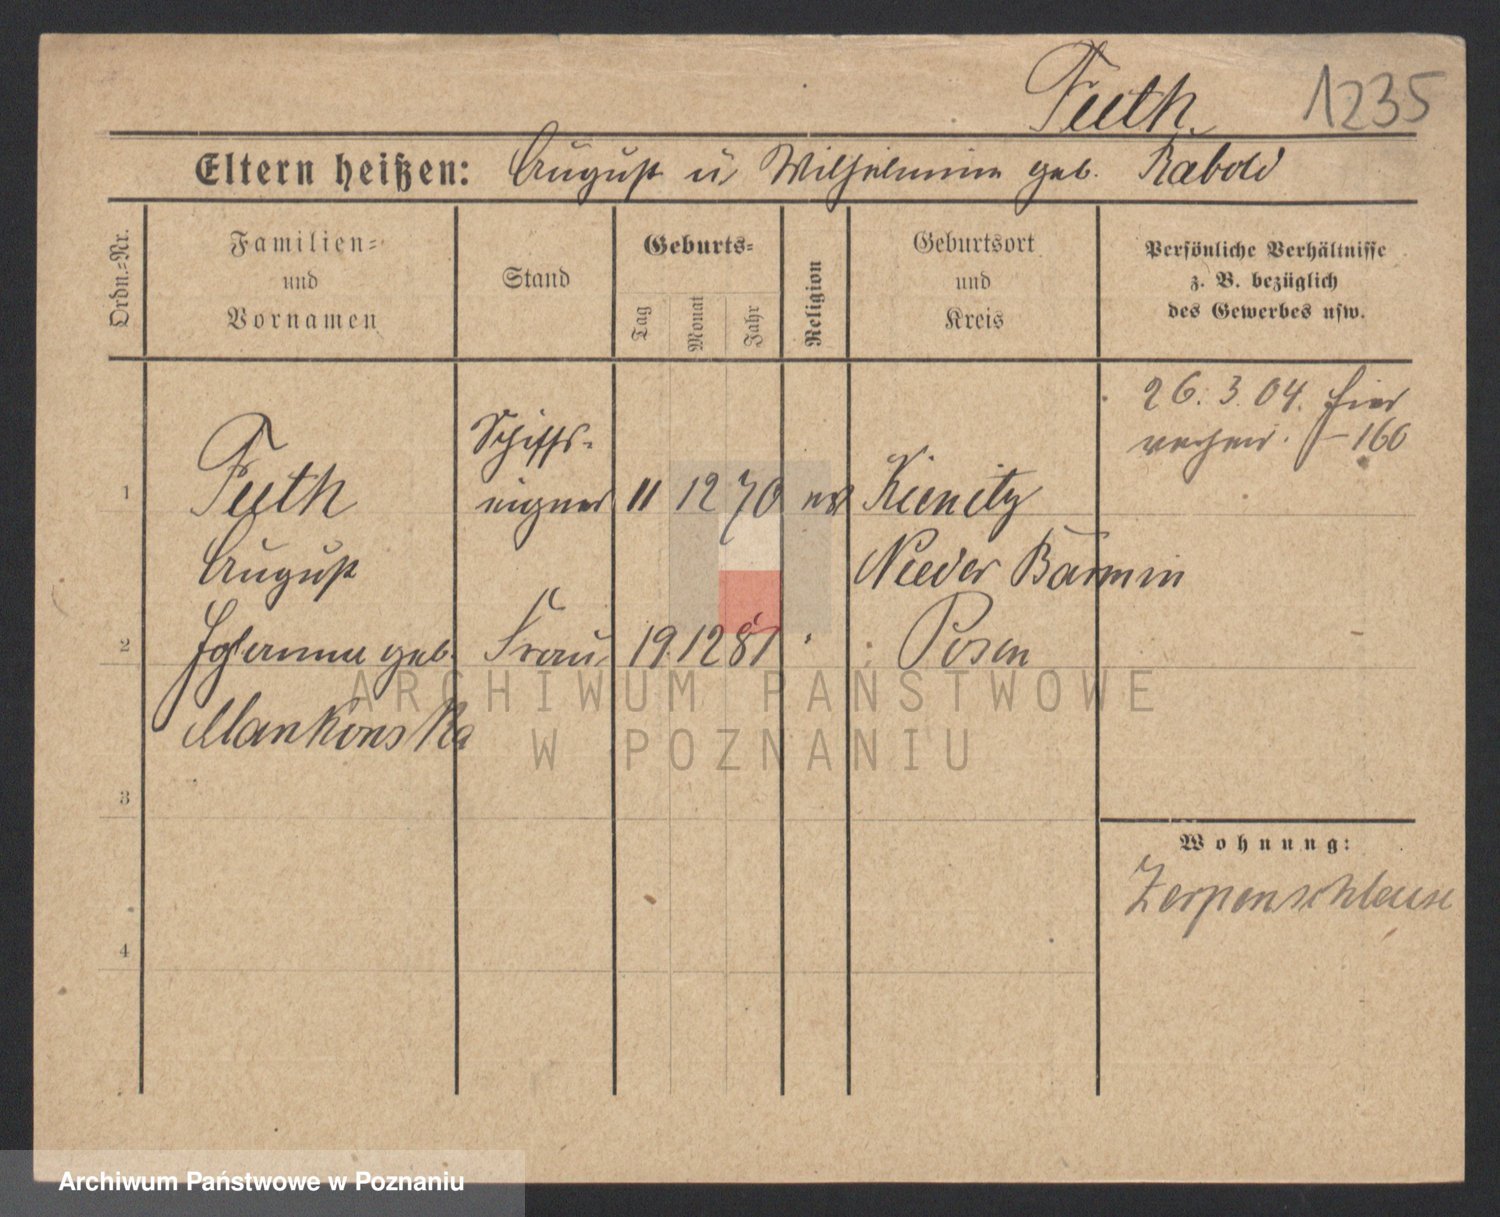 Futh. 1235
Eltern heißen: August u. Wilhelmine geb. Rabold
Ordn.-Nr.
Familien-
und
Vornamen
Stand
Geburts-
Tag
Monat
Jahr
Religion
Geburtsort
und
Kreis
Persönliche Verhältnisse
z. B. bezüglich
des Gewerbes usw.
26. 3. 04. hier
160
Schiffs-
1 Futh eigner 11 12 70 ev Kienitz
August Nieder Barnim
2 Johanna geb. Frau 19. 12 81 " Posen
Mankowska
3
4
Wohnung:
Zerpenschleuse
ARCHIWUM PAŃSTWOWE
W POZNANIU
Archiwum Państwowe w Poznaniu